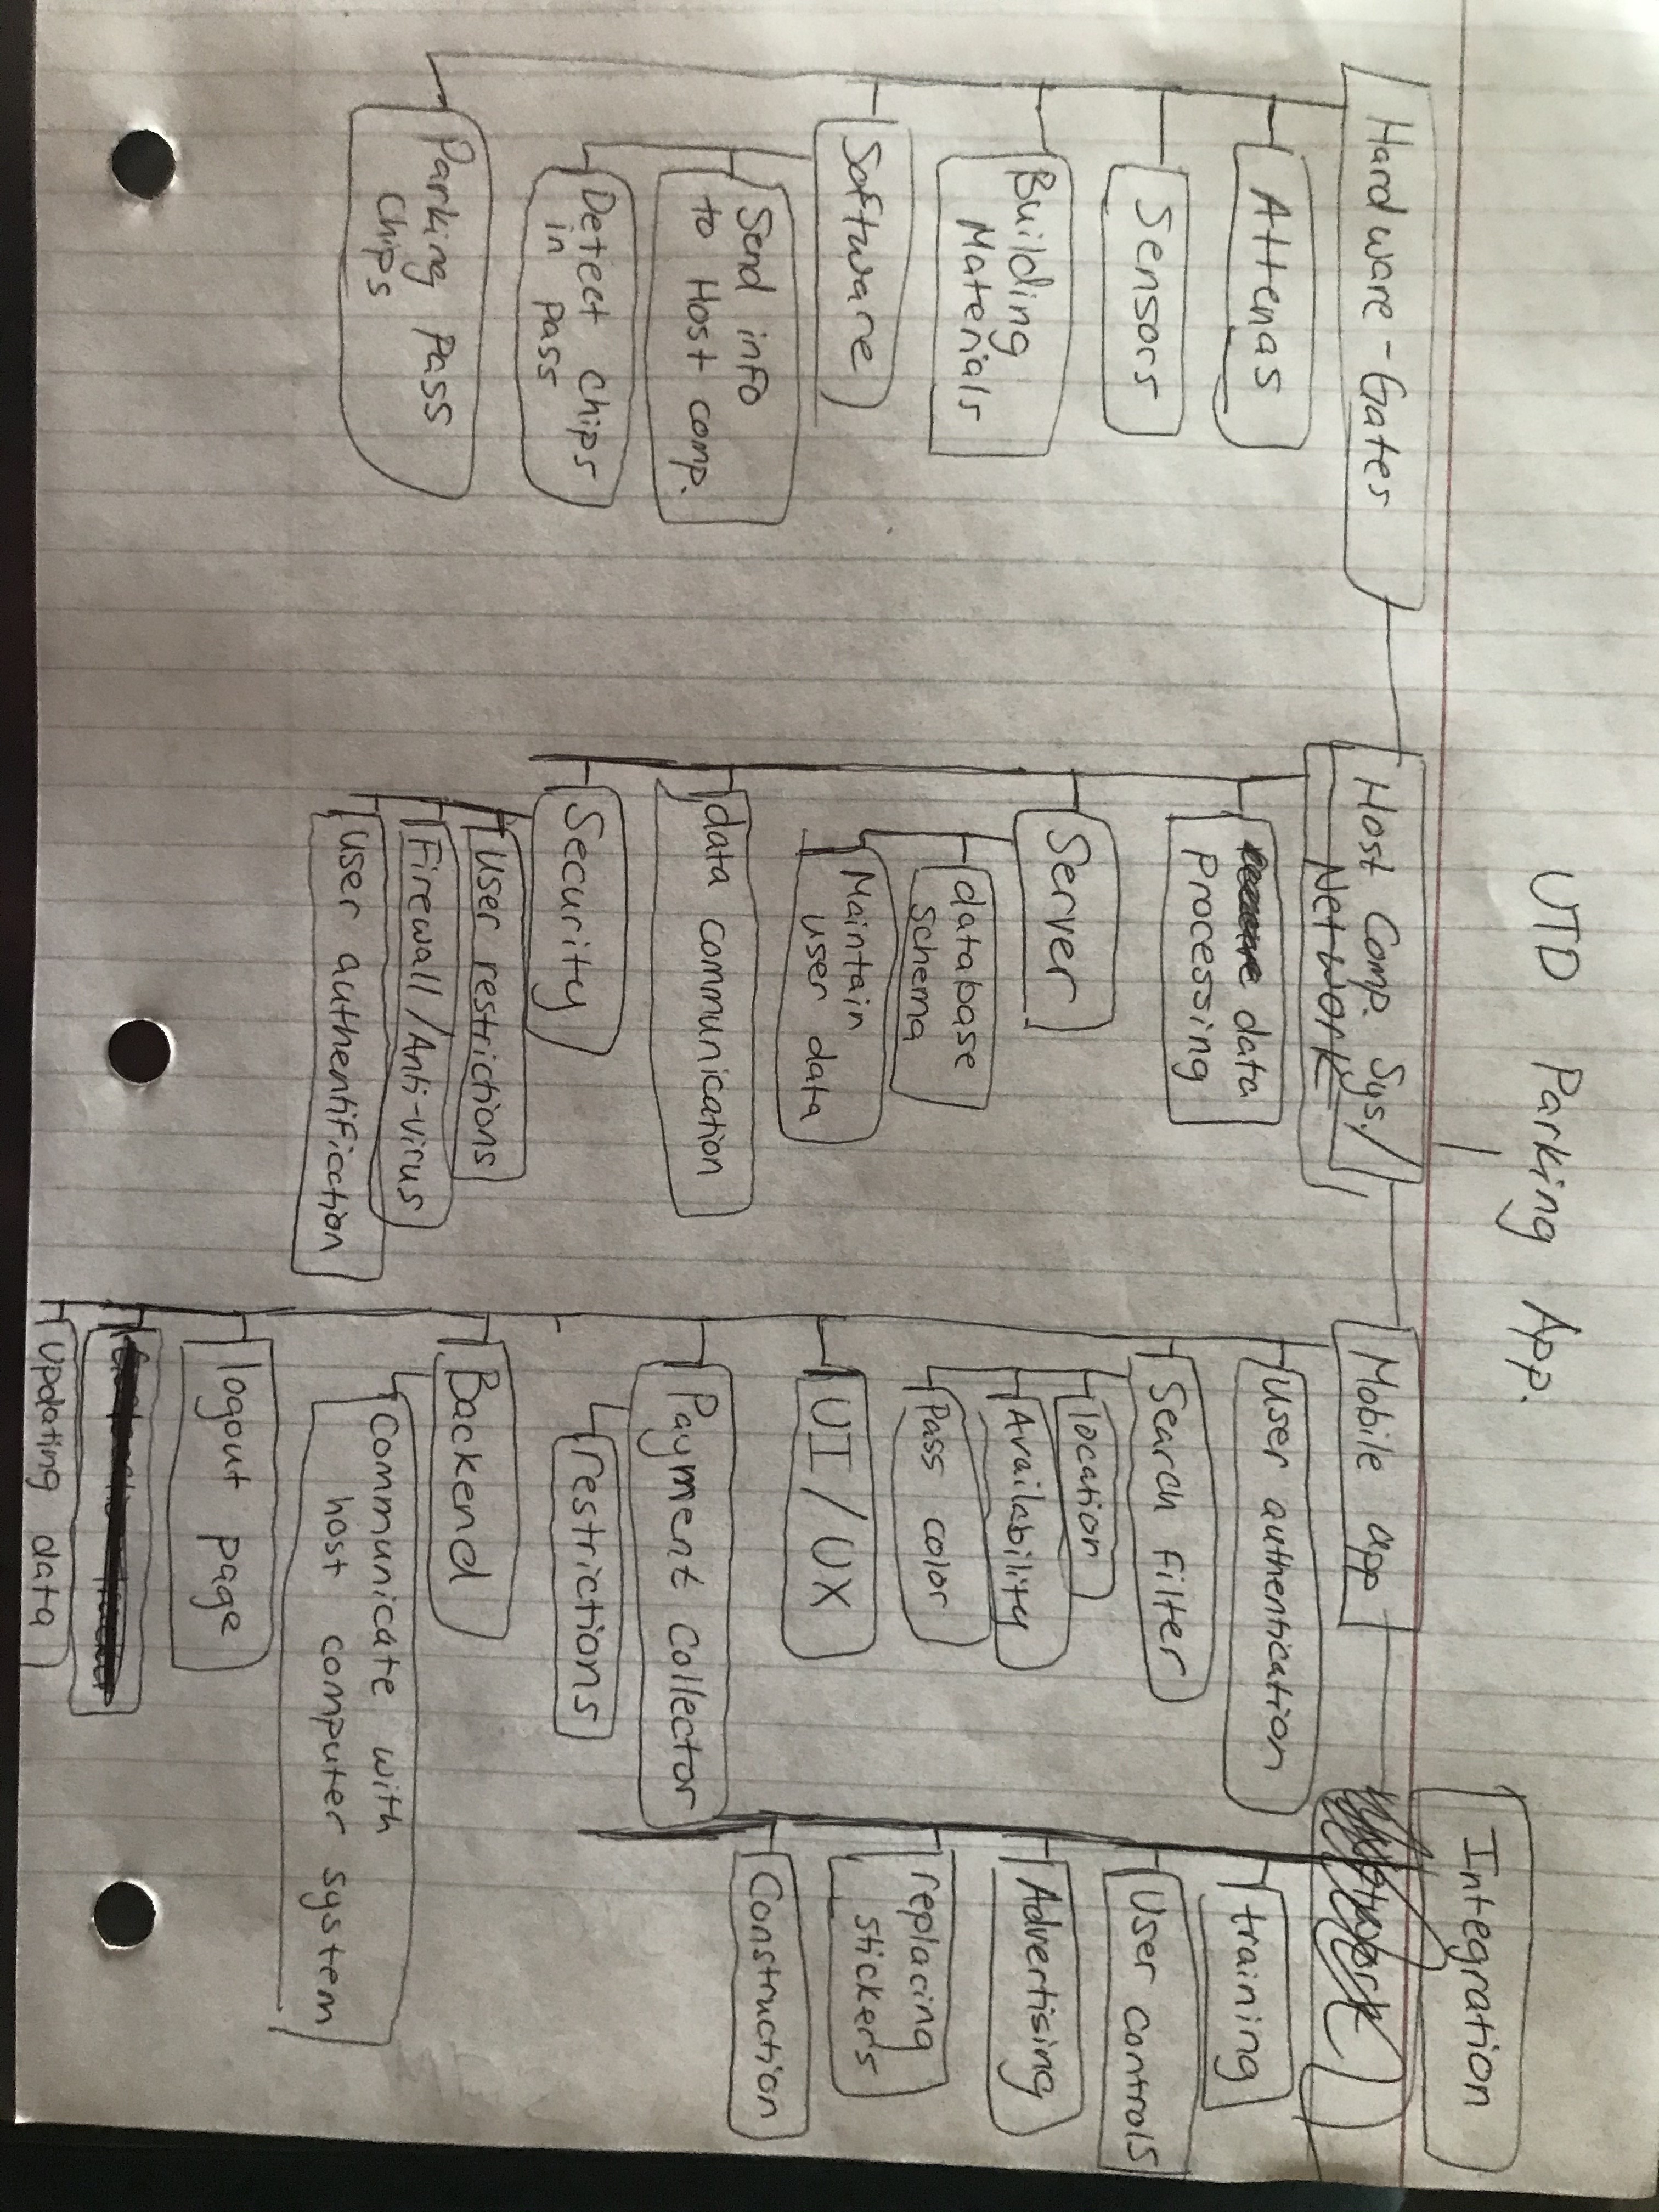 UTD Parking App.
Hardware-Gates
Attenas
Sensors
Building
Materials
Software
Send info
to Host comp.
Detect chips
in pass
Parking Pass
Chips
Host Comp. Sys./
Network
data
Processing
Server
database
schema
Maintain
user data
data communication
Security
User restrictions
Firewall/Anti-virus
user authentifiction
Mobile app
User authentication
Search filter
location
Availability
Pass color
UI/UX
Payment Collector
restrictions
Backend
Communicate with
host computer system
logout page
Updating data
Integration
training
User controls
Advertising
replacing
stickers
Construction